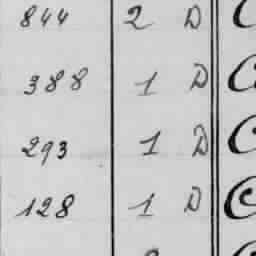 844 2 D C
388 1 D C
293 1 D C
128 1 D C